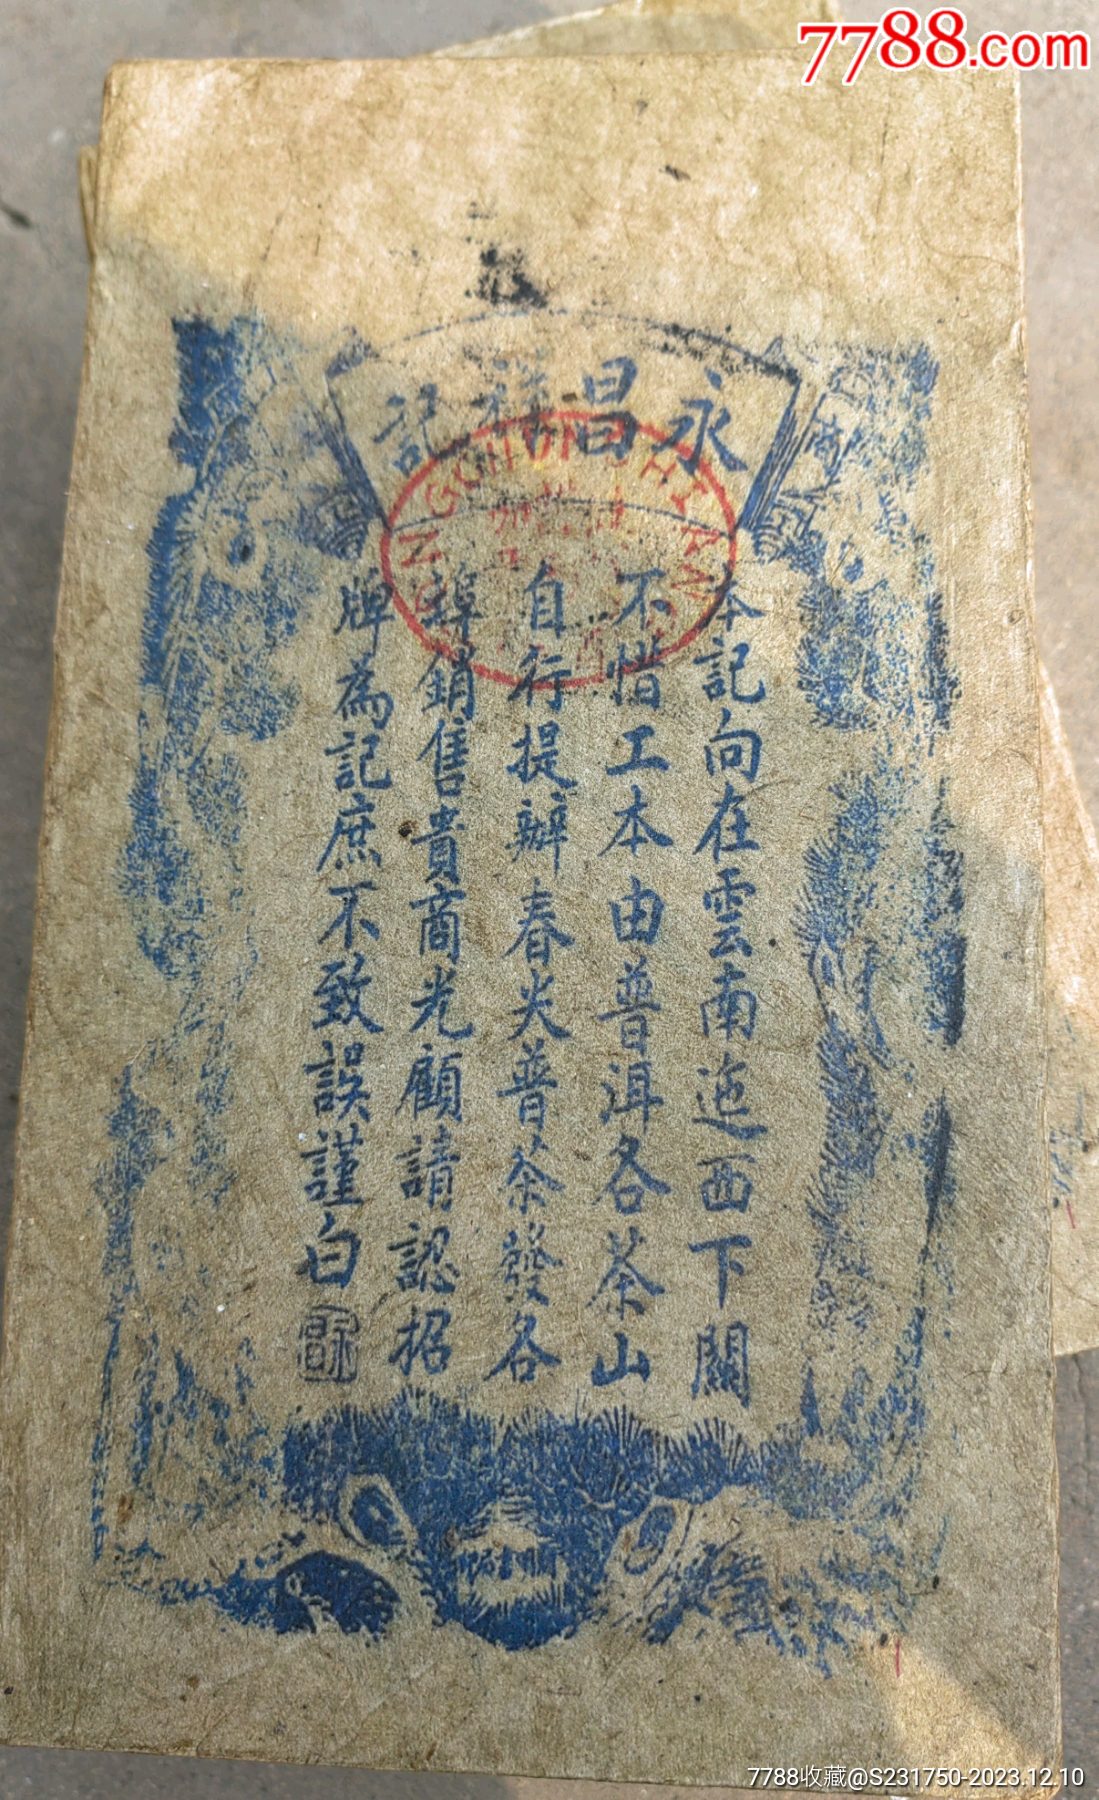 7788.com
永昌祥記
本記向在雲南迤西下關
不惜工本由普洱各茶山
自行提辦春尖普茶發各
銷售貴商光顧請認招
牌為記庶不致誤謹白
7788收藏@S231750-2023.12.10